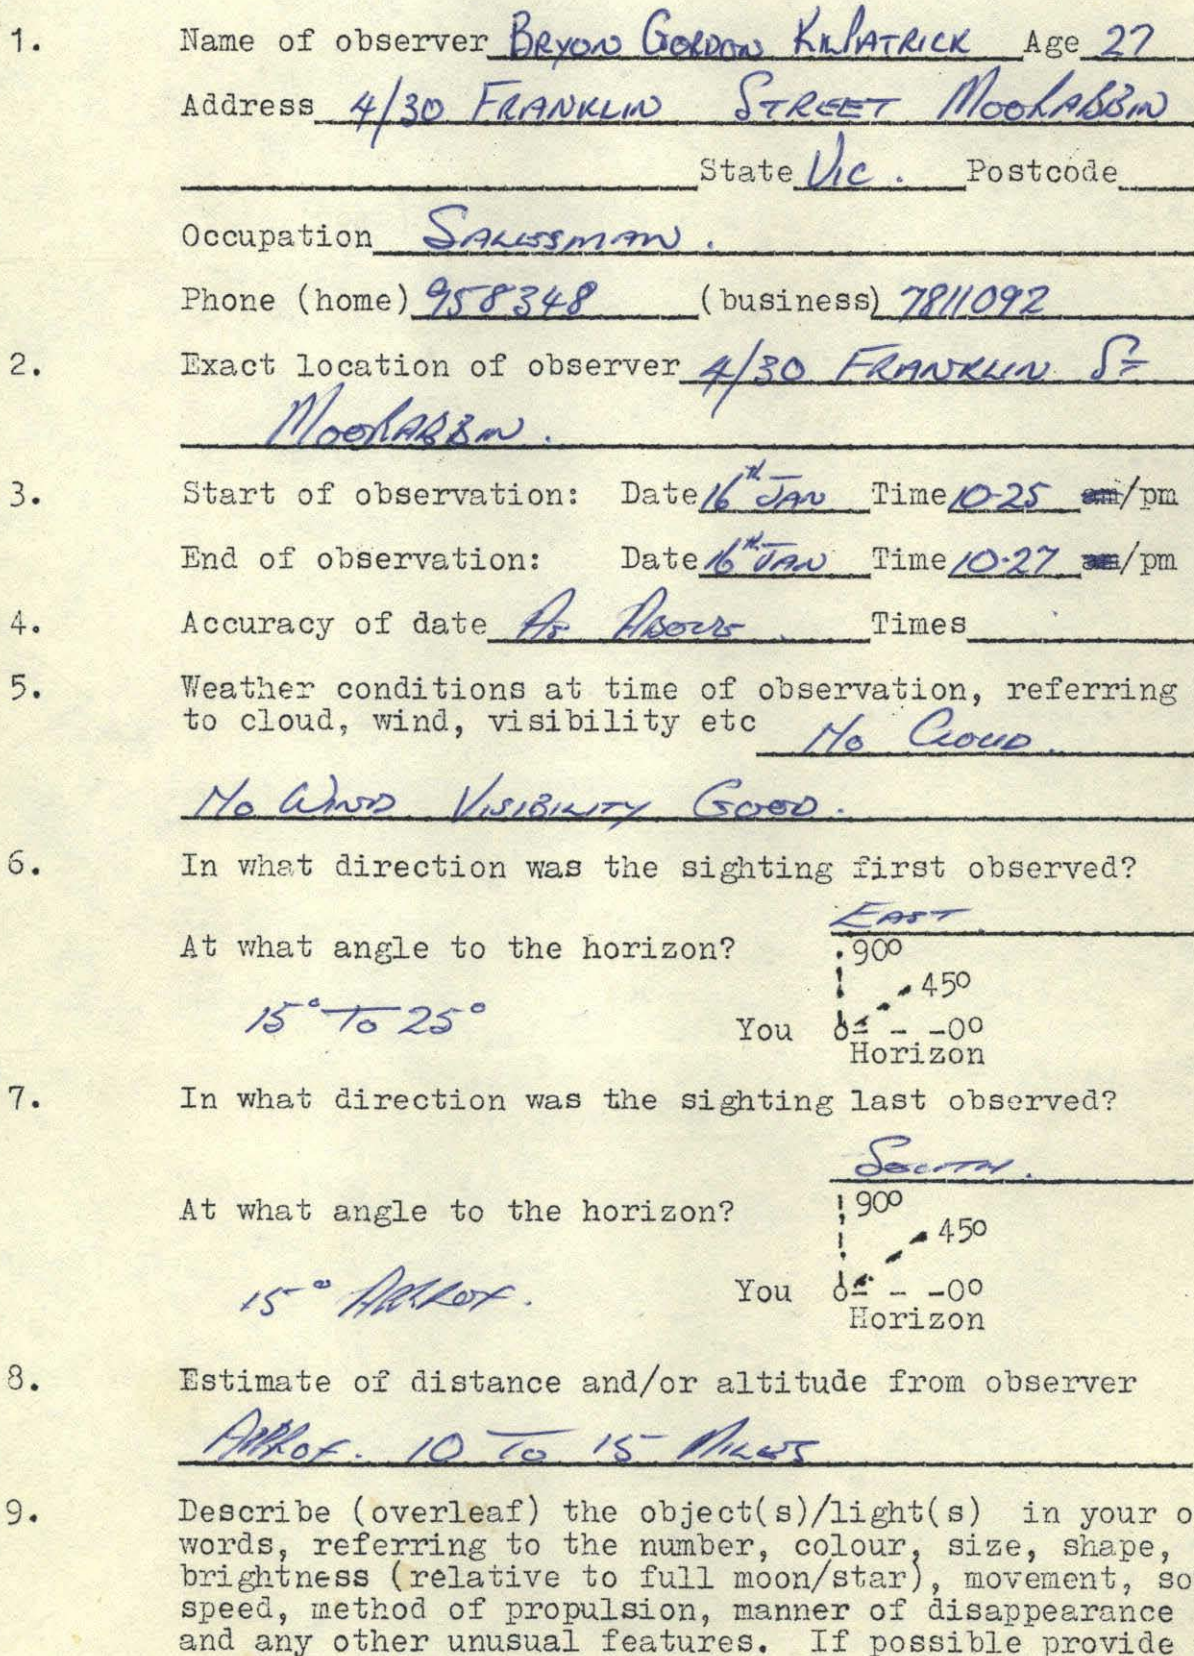 1. Name of observer BRYON GORDON KILPATRICK Age 27
Address 4/30 FRANKLIN STREET MOORABBIN
State VIC. Postcode
Occupation SALESMAN.
Phone (home) 958348 (business) 7811092
2. Exact location of observer 4/30 FRANKLIN ST
MOORABBIN.
3. Start of observation: Date 16th JAN Time 10-25 am/pm
End of observation: Date 16th JAN Time 10-27 am/pm
4. Accuracy of date AS ABOVE. Times
5. Weather conditions at time of observation, referring
to cloud, wind, visibility etc NO CLOUD.
NO WIND VISIBILITY GOOD.
6. In what direction was the sighting first observed?
EAST
At what angle to the horizon? 90º
45º
15° TO 25° You - -0º
Horizon
7. In what direction was the sighting last observed?
SOUTH.
At what angle to the horizon? 90º
45º
15° APPROX. You - -0º
Horizon
8. Estimate of distance and/or altitude from observer
APPROX. 10 TO 15 MILES
9. Describe (overleaf) the object(s)/light(s) in your o
words, referring to the number, colour, size, shape,
brightness (relative to full moon/star), movement, so
speed, method of propulsion, manner of disappearance
and any other unusual features. If possible provide